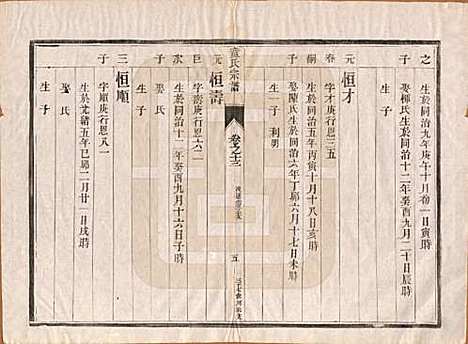 之 生於同治九年庚午十月 一日寅時
子 娶柳氏生於同治十二年癸酉九月二十日辰時
生子
元 恒才
春 字才庚行恩三五
嗣 生於同治五年丙寅十月十八日亥時
子 娶陳氏生於同治六年丁卯六月十七日未時
生一子 利明
宗譜
卷之十三
五
元 恒壽
巨 字壽庚行恩六二
次 生於同治十二年癸酉九月十六日子時
子 娶氏
生子
三 恒順
子 字順庚行恩八一
生於光緒五年己卯二月廿一日戌時
娶氏
生子